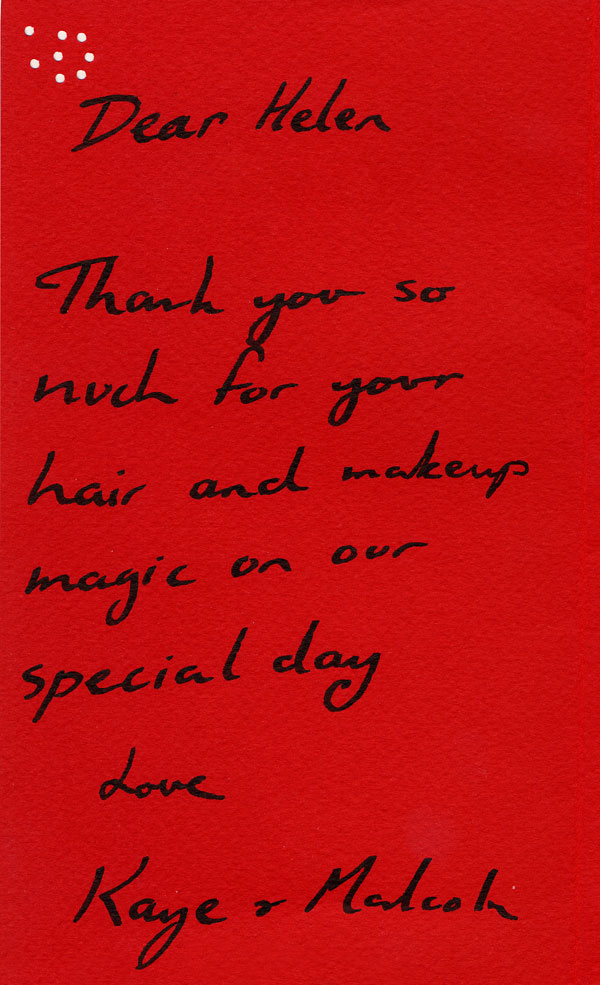 Dear Helen
Thank you so
much for your
hair and makeup
magic on our
special day
Love
Kaye & Malcolm